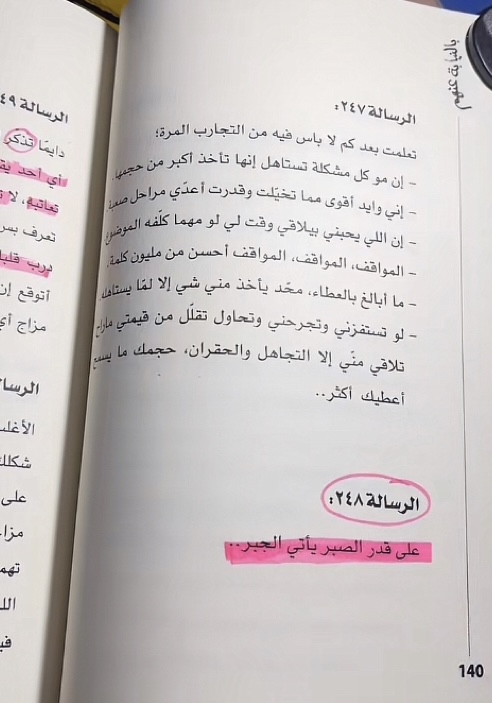 بالنيابة عنهم
الرسالة ٢٤٧:
تعلمت بعد كم لا باس فيه من التجارب المرة؛
- إن مو كل مشكلة تستاهل إنها تأخذ أكبر من حجمها.
- إني وايد أقوى مما تخيّلت وقدرت أعدّي مراحل صعبة
- إن اللي يحبني بيلاقي وقت لي لو مهما كلّفه الموضوع
- المواقف، المواقف، المواقف أحسن من مليون كلمة.
- ما أبالغ بالعطاء، محّد يأخذ مني شي إلا لمّا يستاهله.
- لو تستفزني وتجرحني وتحاول تقلّل من قيمتي ماراح
تلاقي منّي إلا التجاهل والحقران، حجمك ما يسمح
أعطيك أكثر..
الرسالة ٢٤٨:
على قدر الصبر يأتي الجبر..
140
دايمًا تذكر
أي أحد
تعرف
درب
أتوقع إن
مزاج
شكلك
على